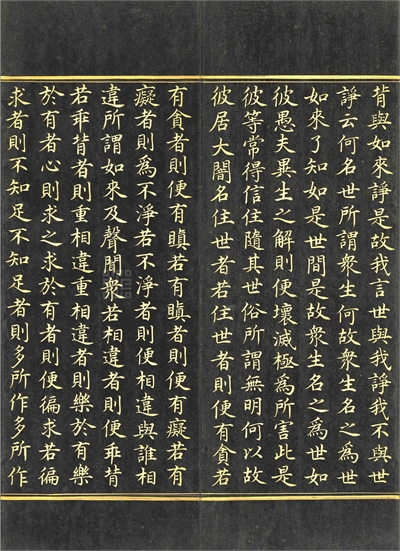 背與如來諍是故我言世與我諍我不與世
諍云何名世所謂衆生何故衆生名之為世
如來了知如是世間是故衆生名之為世如
彼愚夫異生之解則便壞滅極為所害此是
彼等常得信住隨其世俗所謂無明何以故
彼居大闇名住世者若住世者則便有貪若
有貪者則便有瞋若有瞋者則便有癡若有
癡者則為不淨若不淨者則便相違與誰相
違所謂如來及聲聞衆若相違者則便乖背
若乖背者則重相違重相違者則樂於有樂
於有者心則求之求於有者則便徧求若徧
求者則不知足不知足者則多所作多所作